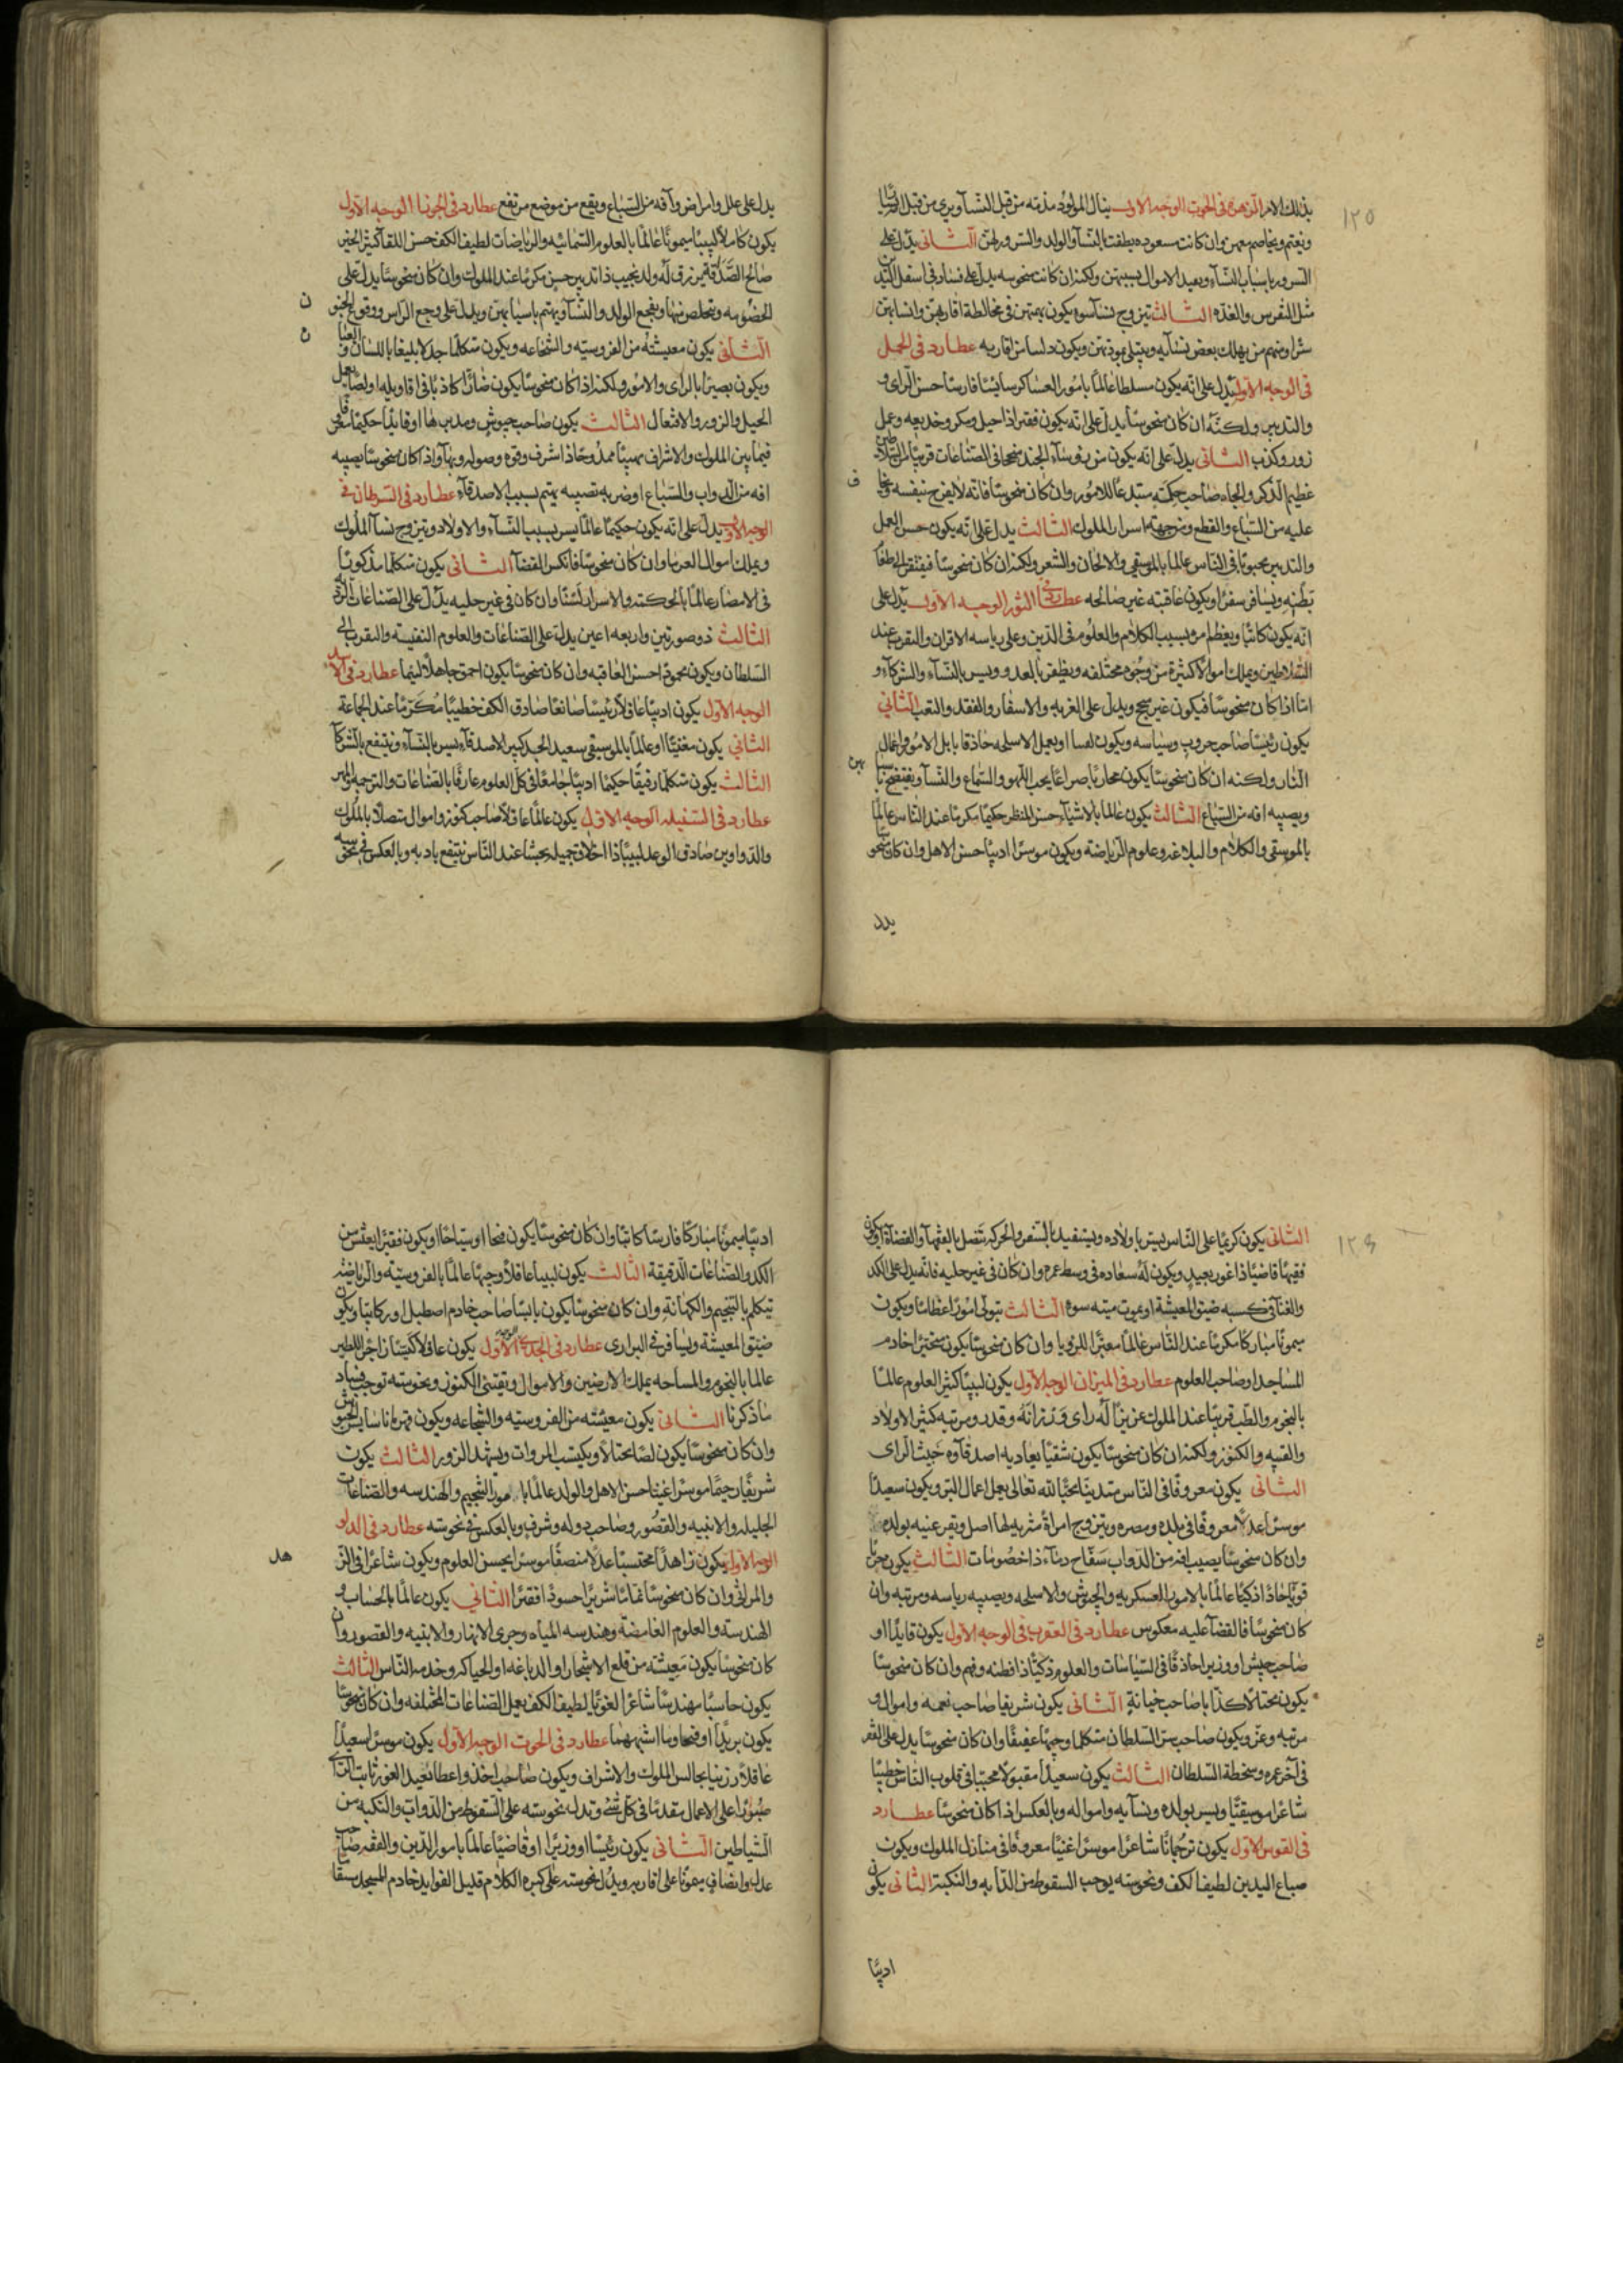 ١٢٥
بذلك الامر الزهرة في الحوت الوجه الاول ينال المولود مذمته من قبل النسآ ويرى من قبل
ويغتم ويخاصمهن وان كانت مسعوده بالنسآ والولد والسرور لهن الثاني يدل على
السرور باسباب النسآء ويفيد الاموال بسببهن ولكن ان كانت منحوسه يدل على فساد في اسفل
مثل النقرس والغدّه الثالث تيزوج نسآ سوء يكون يهتمن في مخالطة اقاربهن وانسابهن
شرا ومنهم من يهلك بعض نسآيه ويبتلى بموتهن ويكون من اقاربه عطارد في الحمل
في الوجه الاول يدل على انه يكون مسلطا عالما بامور العساكر سايسا فارسا حسن الراى و
والتدبير ولكنه ان كان منحوسا يدل على انه يكون فقيرا ذا حيل ومكر وخديعه وعمل
زور وكذب الثاني يدل على انه يكون من رؤسآء الجند منجحا في الصناعات قريبا من السلاطين
عظيم الذكر والجاه صاحب حكمته مبتدعا للامور وان كان منحوسا فانه لا يفرح بنفسه ويخاف
عليه من السباع والقطع ومن جهة اسرار الملوك الثالث يدل على انه يكون حسن العمل
والتدبير محبوبا في الناس عالما بالموسيقي والالحان والشعر ولكن ان كان منحوسا فيفتقر
بطنه ويسافر سفرا ويكون عاقبته غير صالحه عطارد في الثور الوجه الاول يدل على
انه يكون كاتبا ويعظم بسبب الكلام والعلوم في الدين وعلى رياسه الاقران والتقرب عند
السلاطين ويملك اموالا كثيرة من وجوه مختلفه ويظفر بالعدو ويسر بالنسآء والشركاء و
امّا اذا كان منحوسا فيكون غير منجح ويدل على الغربه والاسفار والفقد والتعب الثاني
يكون رئيسا صاحب حروب وسياسه ويكون لصا او يعمل الاسلحه حاذقا الامور واعمال
النار ولكنه ان كان منحوسا يكون محاربا صراعا يحب اللهو والسماع والنسآ ويفتضح
ويصيبه افه من السباع الثالث يكون عالما بالاشيآء حسن المنظر حكيما مكرما عند الناس عالما
بالموسيقي والكلام والبلاغه وعلوم الرياضة ويكون موسرا اديبا حسن الاهل وان كان منحوسا
يدل
يدل على علل وامراض وآفه من السباع ويقع من موضع مرتفع عطارد في الجوزا الوجه الاول
يكون كاملا لبيبا ميمونا عالما بالعلوم السمائيه والرياضات لطيف الكف حسن اللقا كثير الخير
صالح الصداقة يرزق له ولد نجيب ذا تدبير حسن مكرما عند الملوك وان كان منحوسا يدل على
الخصومه ويتخلص منها ويفجع الولد والنسآ ويهتم باسبابهن ويدل على وجع الراس ووقوع الجنون
الثاني يكون معيشته من الفروسيه والشجاعه ويكون متكلما جدلا بليغا باللسان و
ويكون بصيرا بالراى والامور ولكن اذا كان منحوسا يكون ضارا كاذبا في اقاويله او لصا يعمل
الحيل والزور والافتعال الثالث يكون صاحب جيوش ومدبرها او قايدا حكيما
فيما بين الملوك والاشراف مهيبا ممدوحا ذا شرف وقوة وصوله وبهآ واذا كان منحوسا يصيبه
افه من الدواب والسباع او ضربه تصيبه يهتم بسبب الاصدقآء عطارد في السرطان في
الوجه الاول يدل على انه يكون حكيما عالما يسر بسبب النسآء والاولاد وتيزوج نسآ الملوك
ويملك اموال العرما وان كان منحوسا فانكس القضآ الثاني يكون متكلما مذكورا
في الامصار عالما بالحكمته والاسرار لسنا وان كان في غير حليه يدل على الصناعات
الثالث ذو صورتين واربعه اعين يدل على الصناعات والعلوم النفيسة والتقرب الى
السلطان ويكون محمودا حسن العاقبه وان كان منحوسا يكون احمق جاهلا لئيما عطارد في الاسد
الوجه الاول يكون اديبا عاقلا رئيسا صانعا صادق الكف خطيبا مكرما عند الجماعة
الثاني يكون مغنيا او عالما بالموسيقي سعيد الجد كبير الاصدقآء يسر بالنسآء وينتفع بالشركآ
الثالث يكون متكلما رفيقا حكيما اديبا جامعا في كل العلوم عارفا بالصناعات والترجمه
عطارد في السنبله الوجه الاول يكون عالما عاقلا صاحب كنوز واموال متصلا بالملوك
والدواوين صادق الوعد لبيبا ذا اخلاق جميله محببا عند الناس ينتفع باديه وبالعكس في نحوسه
١٢٦
الثاني يكون كريما على الناس يسر باولاده ويستفيد بالسفر والحركه متصل بالفقهآ والقضاة او يكون
فقيها قاضيا ذا غور بعيد ويكون له سعاده في وسط عمره وان كان في غير حليه فانه يدل على الكد
والعنآ في كسبه ضيق المعيشة او يموت ميته سوء الثالث يتولى امورا عظاما ويكون
ميمونا مباركا مكرما عند الناس عالما معبرا للرؤيا وان كان منحوسا يكون خادم
المساجد او صاحب العلوم عطارد في الميزان الوجه الاول يكون لبيبا كثير العلوم عالما
بالنجوم والطب قريبا عند الملوك عزيزا له راى ورزانة وقدر ومرتبه كثير الاولاد
والقنيه والكنوز ولكن ان كان منحوسا يكون شقيا يعاديه اصدقآوه خبيث الراى
الثاني يكون معروفا في الناس متدينا محبا لله تعالى يعمل اعمال البر ويكون سعيدا
موسرا عدلا معروفا في بلده ومصره ويتزوج امراة مثريه لها اصل ويقر عنيه بولده
وان كان منحوسا يصيب افه من الدواب سفاح دمآء ذا خصومات الثالث يكون
قويا حاذا ذكيا عالما بالامور العسكريه والجيوش والاسلحه ويصيبه رياسه ومرتبه وان
كان منحوسا فالقضآ عليه معكوس عطارد في العقرب في الوجه الاول يكون قايدا او
صاحب جيش او وزيرا حاذقا في السياسات والعلوم ذكيا ذا فطنه وفهم وان كان منحوسا
يكون محتالا كذابا صاحب خيانة الثاني يكون شريفا صاحب نعمه واموال و
مرتبه وعز ويكون صاحب سر السلطان متكلما وجيها عفيفا وان كان منحوسا يدل على الفقر
في آخر عمره وسخطة السلطان الثالث يكون سعيدا مقبولا محببا في قلوب الناس خطيبا
شاعرا موسيقيا ويسر بولده ونسآيه وامواله وبالعكس اذا كان منحوسا عطارد
في القوس الاول يكون ترجمانا شاعرا موسرا غنيا معروفا في منازل الملوك ويكون
صباع اليدين لطيف الكف ونحوسته يوجب السقوط من الدآبه والنكبة الثاني يكون
اديبا
اديبا ميمونا مباركا فارسا كاتبا وان كان منحوسا يكون او سياحا او يكون فقيرا يعيش من
الكد والصناعات الدقيقة الثالث يكون لبيبا عاقلا وجيها عالما بالفروسيته والرياضه
يتكلم بالتنجيم والكهانة وان كان منحوسا يكون صاحب خادم اصطبل او ركابيا ويكون
ضيق المعيشة ويسافر في البرارى عطارد في الجدي الوجه الاول يكون عاقلا كيسا زاجرا للطير
عالما بالنجوم والمساحه يملك الارضين والاموال ويقتنى الكنوز ونحوسته توجب فساد
ما ذكرنا الثاني يكون معيشته من الفروسيه والشجاعه ويكون قهرمانا سايس الجيوش
وان كان منحوسا يكون لصا محتالا ويكتسب المروات ويشهد الزور الثالث يكون
شريفا رحيما موسرا غنيا حسن الاهل والولد عالما بامور التنجيم والهندسه والصناعات
الجليله والابنيه والقصور وصاحب دوله وشرف وبالعكس في نحوسته عطارد في الدلو
الوجه الاول يكون زاهدا محتسبا عدلا منصفا موسرا يحسن العلوم ويكون شاعرا في الزهد
والمراثي وان كان منحوسا نماما شريرا حسودا فقيرا الثاني يكون عالما بالحساب و
الهندسته والعلوم الغامضة وهندسه المياه وجرى الانهار والابنيه والقصور وان
كان منحوسا يكون معيشته من قلع الاشجار او الدباغه او الحياكه وخدمه الناس الثالث
يكون حاسبا مهندسا شاعرا لغويا لطيف الكف يعمل الصناعات المختلفه وان كان منحوسا
يكون بريدا او وما اشبههما عطارد في الحوت الوجه الاول يكون موسرا سعيدا
عاقلا رزينا يجالس الملوك والاشراف ويكون صاحب اخذ واعطا بعيد الغور ثابت الراى
صبورا على الاعمال مقدما في كل شئ وتدل نحوسته على السقوط من الدواب والنكبه من
الشياطين الثاني يكون رئيسا او وزيرا او قاضيا عالما بامور الدين والفقه صاحب
عدل وانصاف ميمونا على اقاربه ويدل نحوسته على كبره الكلام قليل الفوايد خادم المسجد